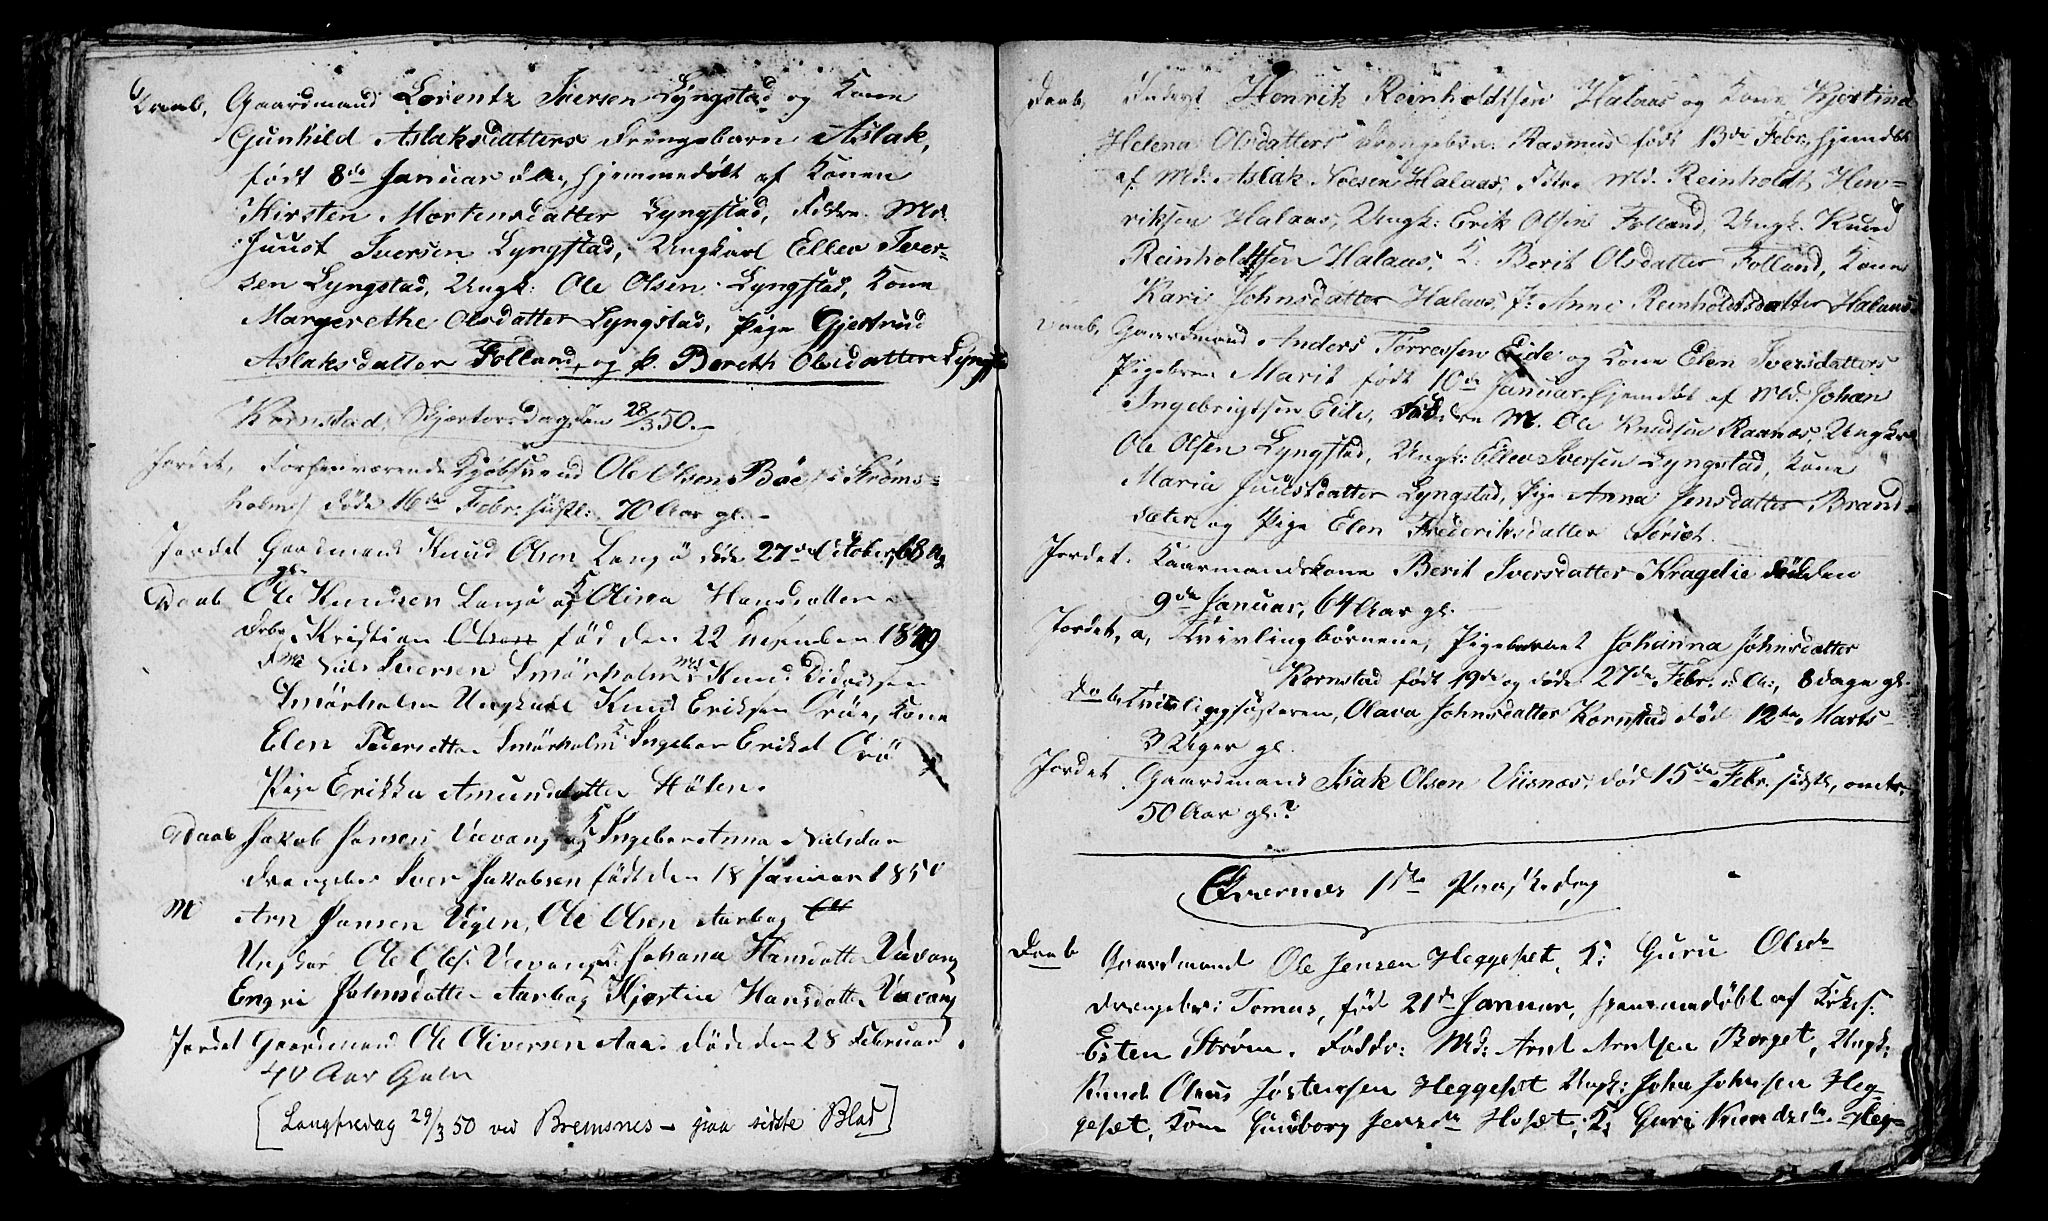 Daab, Gaardmand Lorentz Iversen Lyngstad og Kone
Gunhild Aslaksdatters Drengebarn Aslak,
født 8de Januar d.A., hjemmedøbt af Konen
Kirsten Mortensdatter Lyngstad, Fddre. Md.
Juust Iversen Lyngstad, Ungkarl Ellev Iver-
sen Lyngstad, Ungk: Ole Olsen Lyngstad, Kone
Margrethe Olsdatter Lyngstad, Pige Gjertrud
Aslaksdatter Folland, og P. Bereth Olsdatter Lyngstad
Kornstad, Skjærtorsdag den 28/3 50.
Jordet, Forhenværende Kjøbsvend Ole Olsen Böe, Strøms-
holm) døde 16de Febr: sidstl: 70 Aar gl. -
Jordet Gaardmand Knud Olsen Langö döde 27de October, 68 Ag
gl.
Daab Ole Knudsen Langö og K Olina Hansdatter
Drbr. Kristian Olsen fød den 22 Desember 1849
F Md Nils Iversen Smörholm Md Knud Didriksen
Smörholm Ungkarl Knud Eriksen Oröe, Kone
Elen Pedersdatter Smörholm K. Ingebor Eriksd Orö
Pige Erikka Amundsdatter Hölen.
Daab Jakob Jensen Vævang og K Ingebor Anna Nilsdar
drengebr Iver Jakobsen föd den 18 Januar 1850
M Arn Jansen Vigen, Ole Olsen Aarbog
Ungkar Ole Olsf. Vævang K Johana Hansdatter Vævang
Engri Johnsdatter Aarbog Kjertine Hansdatter Vævang
Jordet Gaardmand Ole Oliversen Aaa. Døde den 28 Februar
40 Aar Galm
[Langfredag 29/3 50 ved Bremsnes - paa sidste Blad]
Daab, Inderst Henrik Reinholdtsen Halaas og Kone Kjerstina
Helena Olsdatters Drengebrn: Rasmus født 13de Febr. hjemdbt
af Md: Aslak Noesen Halaas, Fddre Md. Reinholdt Hen-
riksen Halaas, Ungk: Erik Olsen Folland, Ungk. Knud
Reinholdtsen Halaas, K. Berit Olsdatter Folland, Kone
Kari Johnsdatter Halaas, P. Anne Reinholdtsdatter Halaas
Daab, Gaardmand Anders Torressen Eide og Kone Elen Iversdatters
Pigebrn Marit født 10de Januar, hjemdbt af Md. Johan
Ingebrigtsen Eide, Fddre M. Ole Knudsen Raanæs, Ungkr
Ole Olsen Lyngstad, Ungk: Ellev Iversen Lyngstad, Kone
Maria Juulsdatter Lyngstad, Pige Anna Jensdatter Brand-
sæter og Pige Elen Frederiksdatter Sörset.
Jordet. Kaarmandskone Berit Iversdatter Kragelie død den
9de Januar, 64 Aar gl.
Jordet, a, Tvivlingbørnene, Pigebarnet Johanna Johnsdatter
Kornstad født 19de og døde 27de Febr. d.A., 8 dage gl.
Daab, Tvillingsøsteren, Olava Johnsdatter Kornstad død 12te Marts
3 Uger gl.
Jordet Gaardmand Isak Olsen Viisnæs, død 15de Febr. sidstl, omtr.
50 Aar gl.?
Qvernes 1ste Paaskedag
Daab Gaardmand Ole Jensen Heggeset, K: Guru Olsdr
drengebr: Tomas, född 21de Januar, hjemmedöbt af Kirkes.
Esten Ström. Faddr: Md: Arnt Arntsen Berget, Ungk:
Knud Olaus Jöstensen Heggeset Ungk: John Johnsen Heg-
geset, Kone Gunborg Jensdr Hoset, K: Guri Knudsdr. Heg-